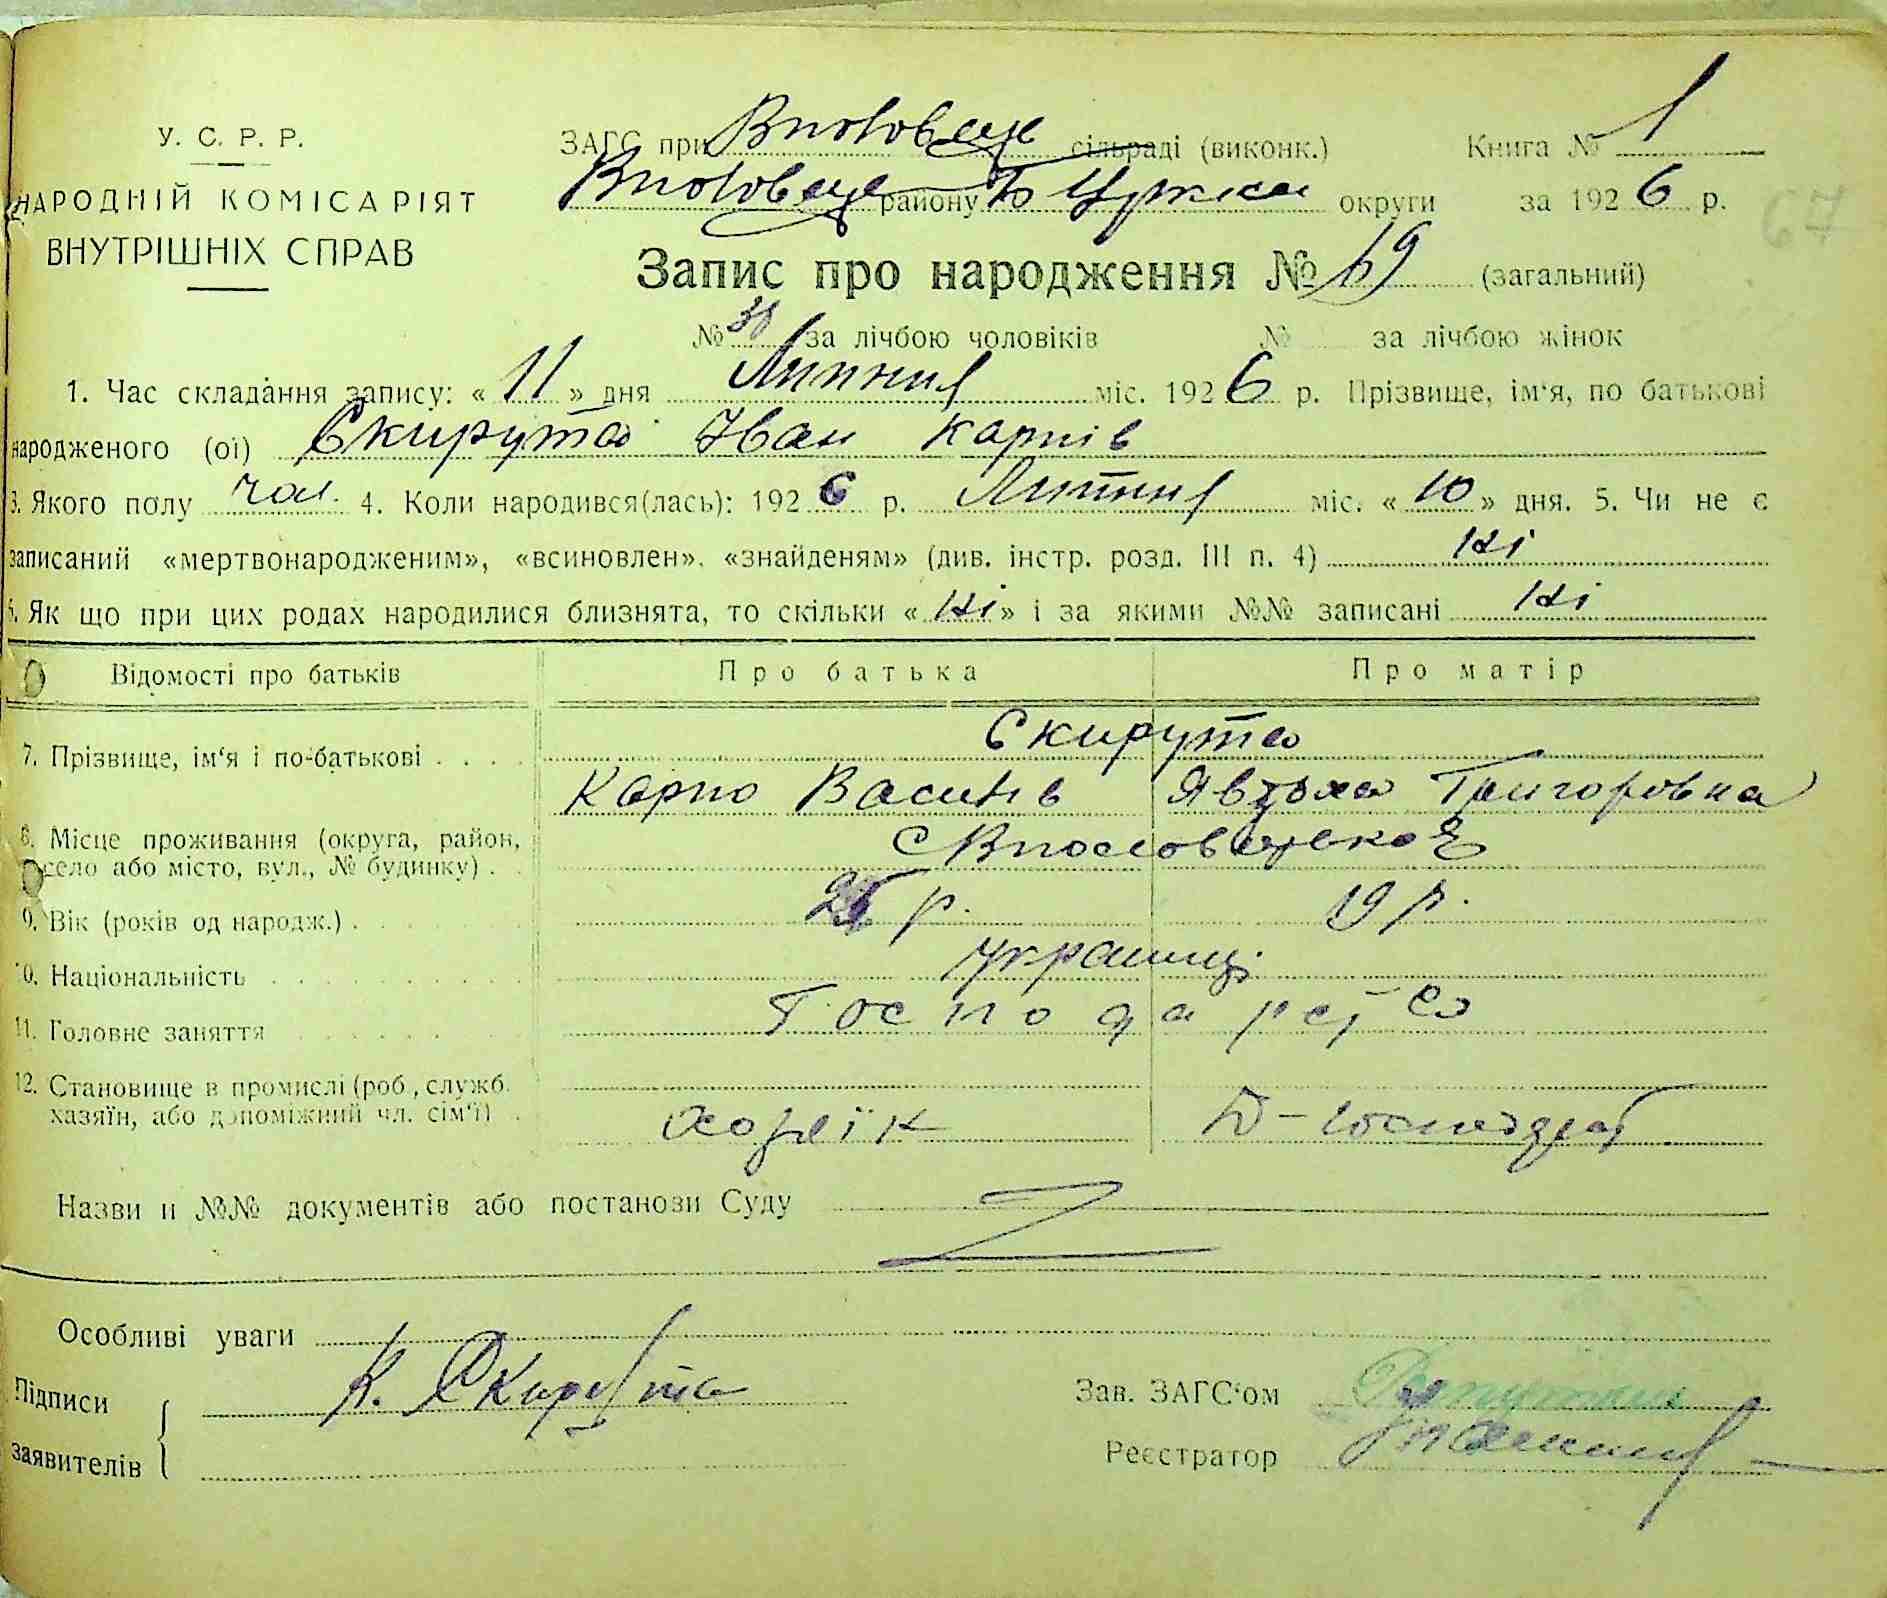 У. С. Р. Р.
НАРОДНІЙ КОМІСАРІЯТ
ВНУТРІШНІХ СПРАВ
ЗАГС при сільраді (виконк.) Книга № 1
району Б Церкка округи за 1926 р.
67
Запис про народження № 69 (загальний)
№ за лічбою чоловіків № за лічбою жінок
1. Час складання запису: « 11 » дня Липния міс. 1926 р. Прізвище, ім'я, по батькові
народженого (ої) Скирута Іван Карпів
3. Якого полу чол. 4. Коли народився(лась): 1926 р. Липния міс. « 10 » дня. 5. Чи не є
записаний «мертвонародженим», «всиновлен», «знайденям» (див. інстр. розд. III п. 4) Ні
6. Як що при цих родах народилися близнята, то скільки « Ні » і за якими №№ записані Ні
Відомості про батьків Про батька Про матір
7. Прізвище, ім'я і по-батькові Скирута
Карпо Василів Явдоха Григоровна
8. Місце проживання (округа, район,
село або місто, вул., № будинку)
9. Вік (років од народж.) р. 19 р.
10. Національність українці
11. Головне заняття Господарство
12. Становище в промислі (роб., служб.
хазяїн, або допоміжний чл. сім'ї)
Назви и №№ документів або постанови Суду
Особливі уваги
Підписи К. Скирута
заявителів
Зав. ЗАГС'ом
Реєстратор